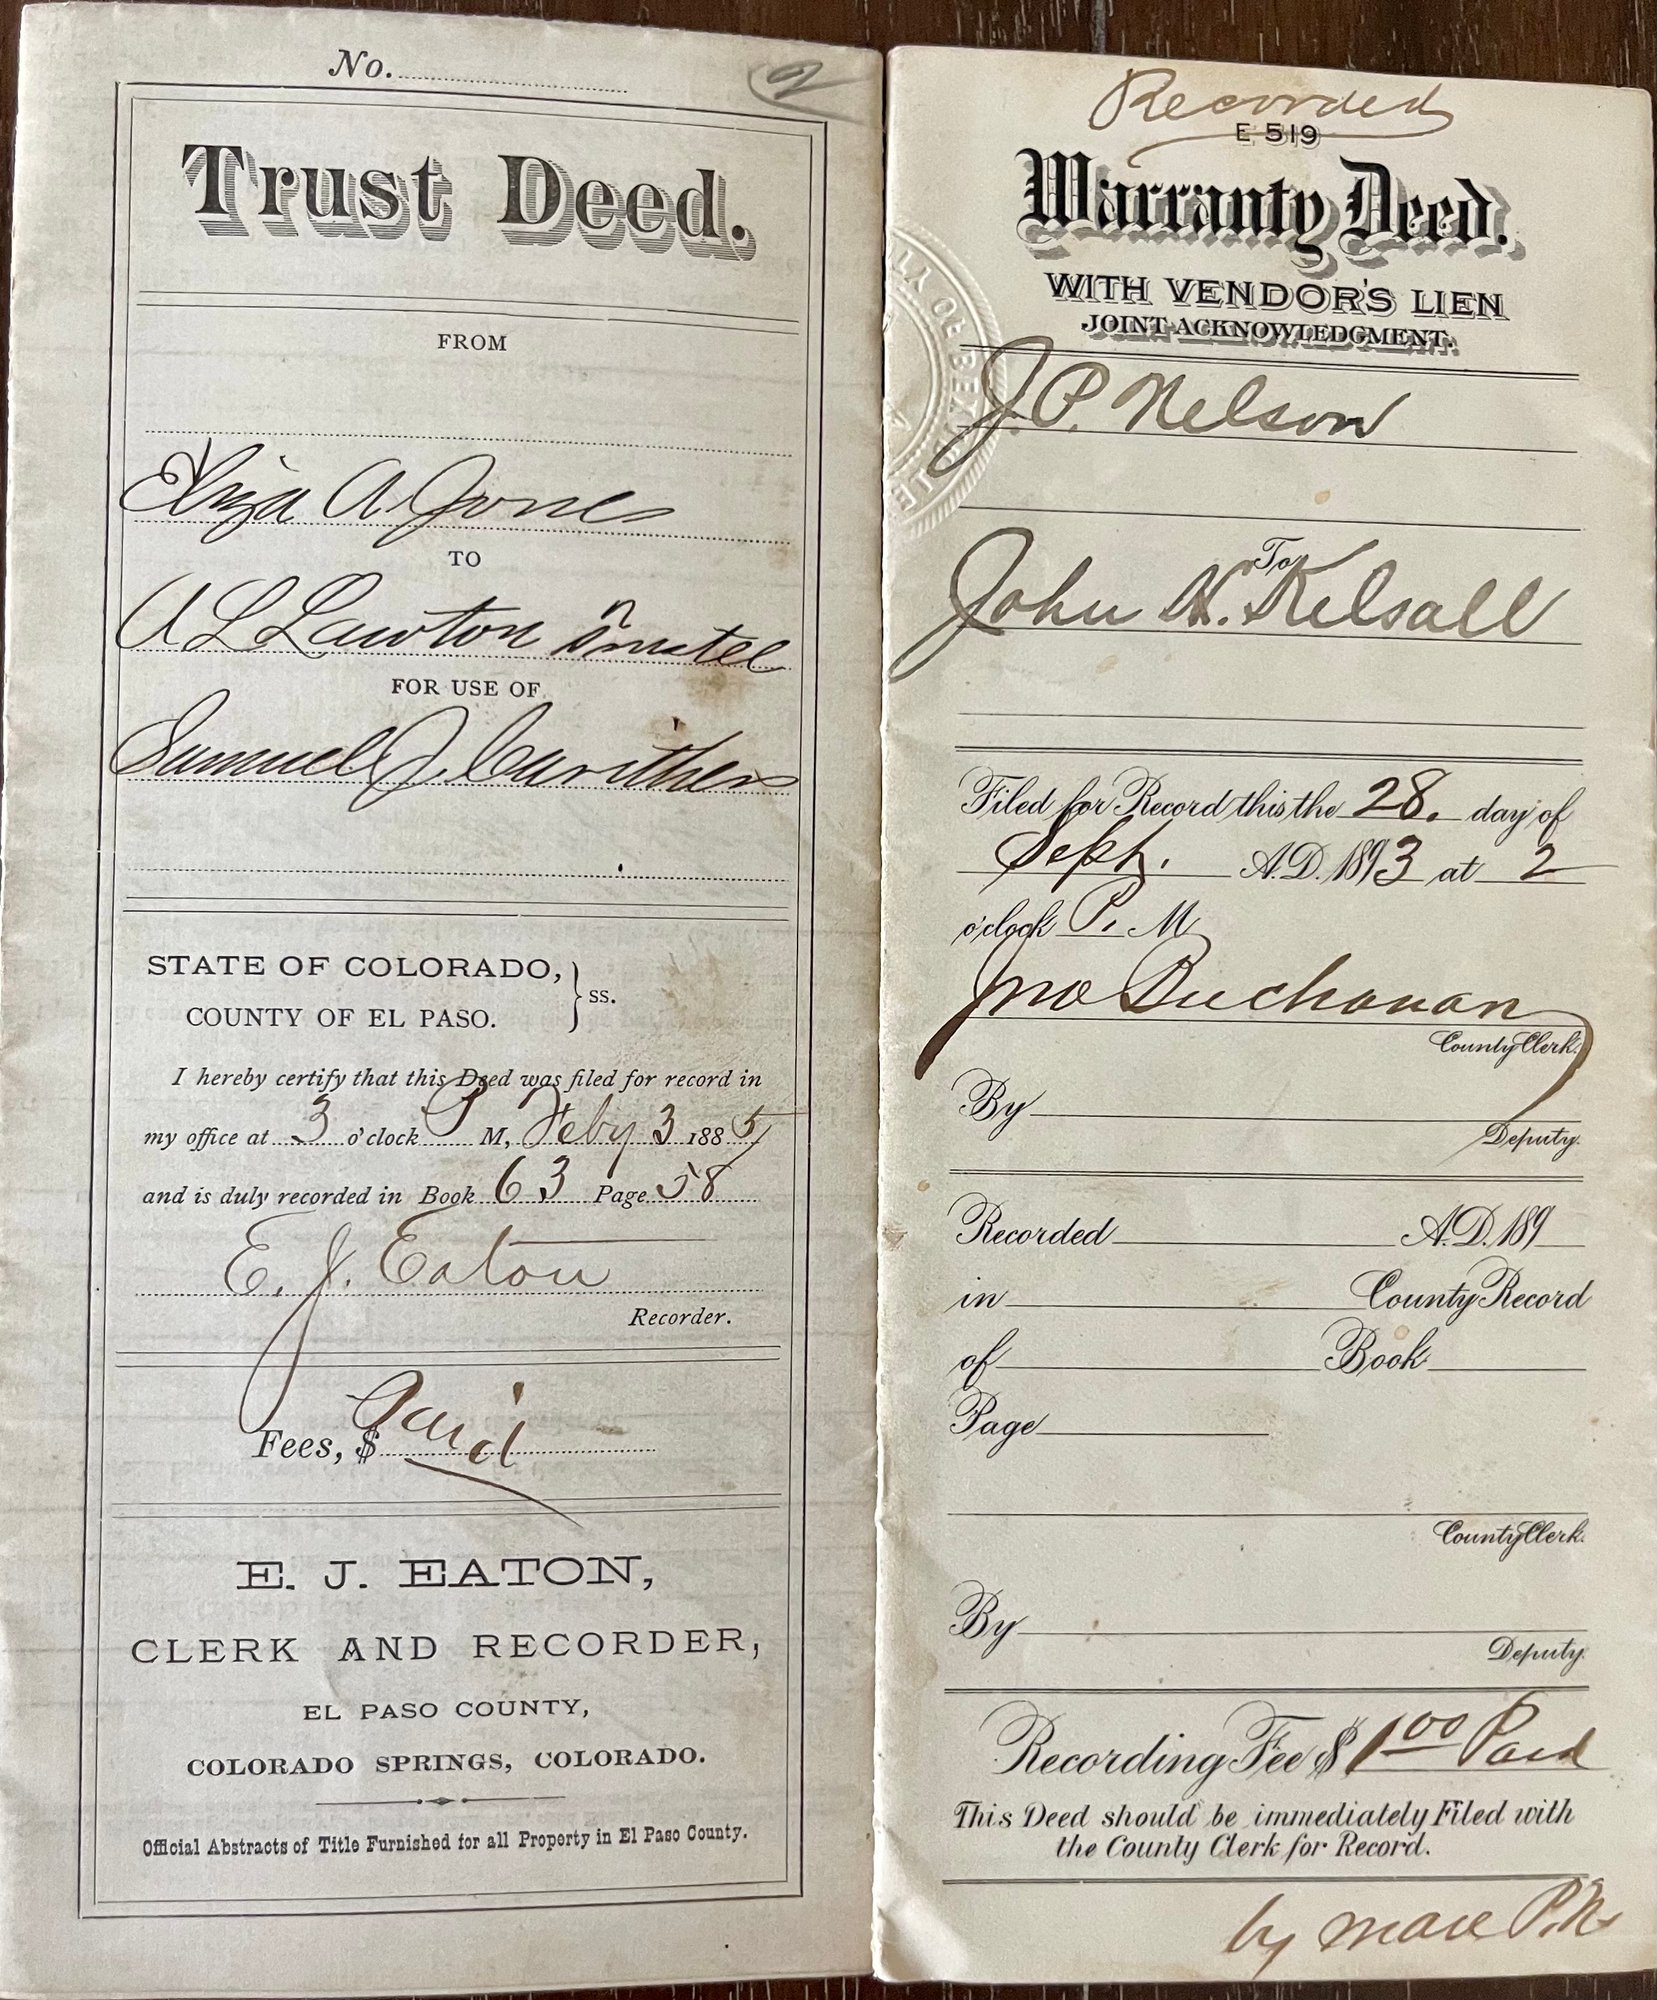 No.
2
Trust Deed.
FROM
Eliza A. Jones
TO
A L Lawton Trustee
FOR USE OF
Samuel J. Carithers
STATE OF COLORADO,
COUNTY OF EL PASO.
} ss.
I hereby certify that this Deed was filed for record in
my office at 3 o'clock P M, Feby 3 1885
and is duly recorded in Book 63 Page 58
E. J. Eaton
Recorder.
Fees, $ Paid
E. J. EATON,
CLERK AND RECORDER,
EL PASO COUNTY,
COLORADO SPRINGS, COLORADO.
Official Abstracts of Title Furnished for all Property in El Paso County.
Recorded
E 519
Warranty Deed.
WITH VENDOR'S LIEN
JOINT ACKNOWLEDGMENT.
J. P. Nelson
To
John H. Kelsall
Filed for Record this the 28. day of
Sept. A.D. 1893 at 2
o'clock P. M
Jno Buchanan
County Clerk.
By
Deputy.
Recorded A.D. 189
in County Record
of Book
Page
County Clerk.
By
Deputy.
Recording Fee $ 1.00 Paid
This Deed should be immediately Filed with
the County Clerk for Record.
by